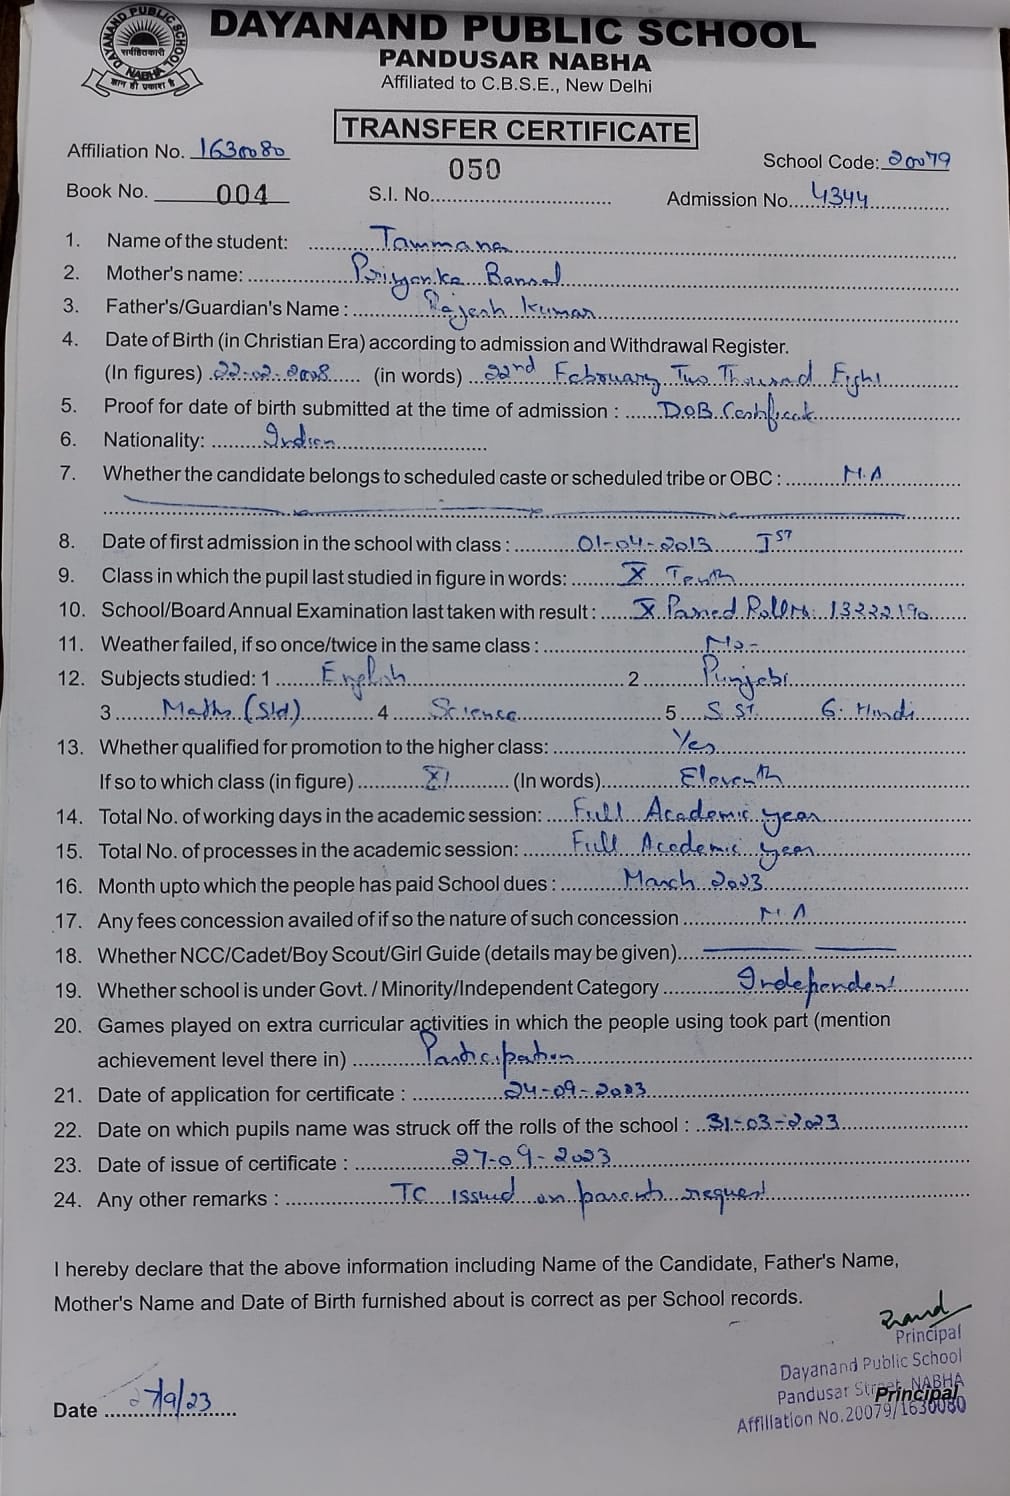 DAYANAND PUBLIC SCHOOL
DAYANAND PUBLIC SCHOOL
NABHA
ज्ञान ही प्रकाश है
PANDUSAR NABHA
Affiliated to C.B.S.E., New Delhi
TRANSFER CERTIFICATE
Affiliation No. 1630080
050
School Code: 20079
Book No. 004
S.I. No.
Admission No. 4344
1. Name of the student: Tammana
2. Mother's name: Priyanka Bansal
3. Father's/Guardian's Name : Rajesh Kumar
4. Date of Birth (in Christian Era) according to admission and Withdrawal Register.
(In figures) 22-02-2008 (in words) 22nd February Two Thousand Eight
5. Proof for date of birth submitted at the time of admission : DOB Certificate
6. Nationality: Indian
7. Whether the candidate belongs to scheduled caste or scheduled tribe or OBC : N.A
8. Date of first admission in the school with class : 01-04-2013 Ist
9. Class in which the pupil last studied in figure in words: X Tenth
10. School/Board Annual Examination last taken with result : X Passed Roll No. 13222190
11. Weather failed, if so once/twice in the same class : No-
12. Subjects studied: 1 English 2 Punjabi
3 Maths (Std) 4 Science 5 S.St. 6. Hindi
13. Whether qualified for promotion to the higher class: Yes
If so to which class (in figure) XI (In words) Eleventh
14. Total No. of working days in the academic session: Full Academic year
15. Total No. of processes in the academic session: Full Academic year
16. Month upto which the people has paid School dues : March 2023
17. Any fees concession availed of if so the nature of such concession N.A
18. Whether NCC/Cadet/Boy Scout/Girl Guide (details may be given)
19. Whether school is under Govt. / Minority/Independent Category Independent
20. Games played on extra curricular activities in which the people using took part (mention
achievement level there in) Participation
21. Date of application for certificate : 24-09-2023
22. Date on which pupils name was struck off the rolls of the school : 31-03-2023
23. Date of issue of certificate : 27-09-2023
24. Any other remarks : TC issued on parents request
I hereby declare that the above information including Name of the Candidate, Father's Name,
Mother's Name and Date of Birth furnished about is correct as per School records.
Principal
Dayanand Public School
Pandusar Street, NABHA
Principal
Affillation No.20079/1630080
Date 27/9/23